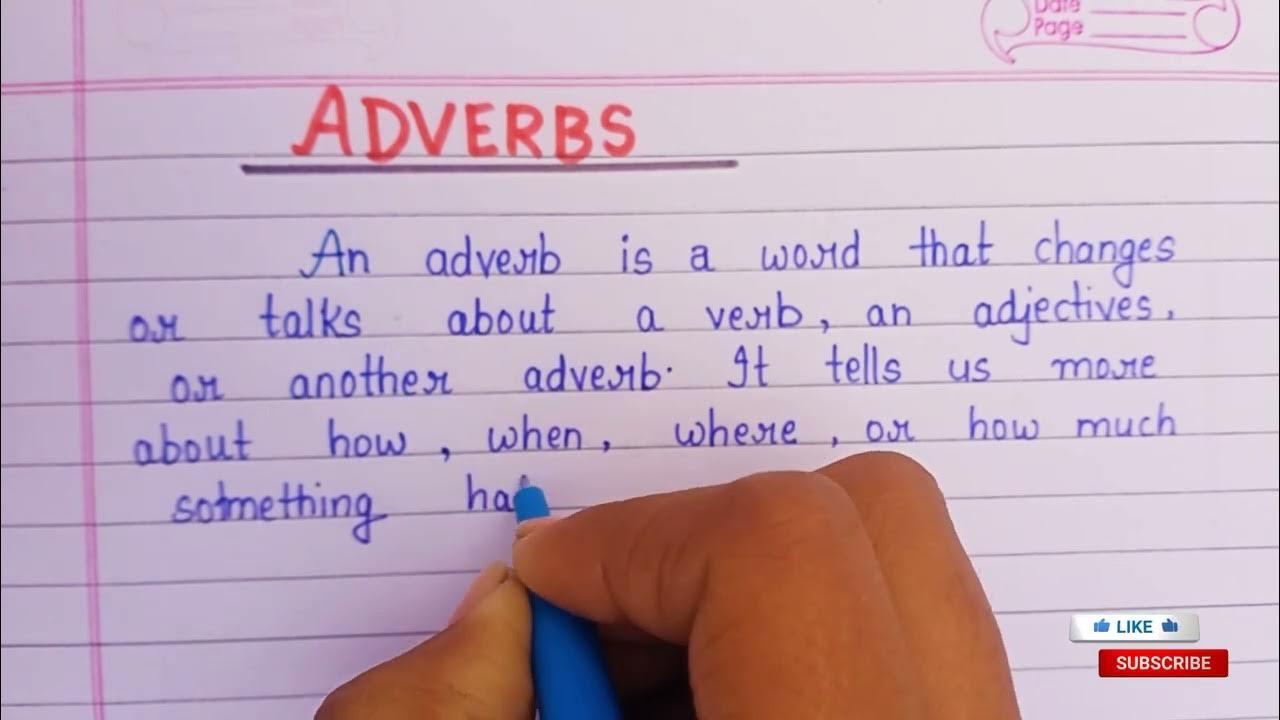 Date
Page
ADVERBS
An adverb is a word that changes
or talks about a verb, an adjectives,
or another adverb. It tells us more
about how, when, where, or how much
sotmething ha
LIKE
SUBSCRIBE